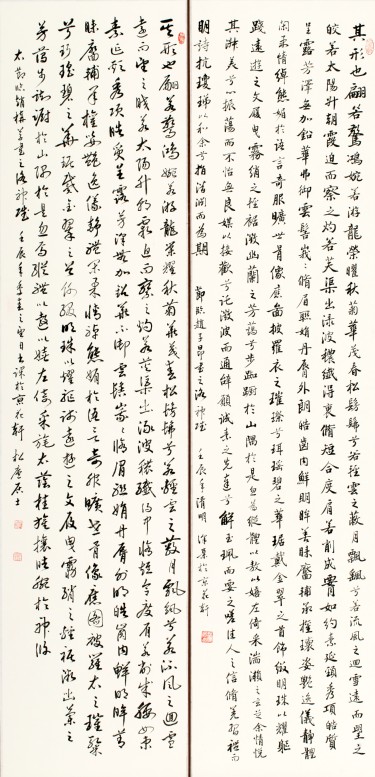 其形也翩若驚鴻婉若游龍榮曜秋菊華茂春松髣髴兮若輕雲之蔽月飄颻兮若流風之迴雪遠而望之
皎若太陽升朝霞迫而察之灼若芙蕖出淥波襛纖得衷脩短合度肩若削成腰如約素延頸秀項皓質
呈露芳澤無加鉛華弗御雲髻峩峩脩眉聯娟丹脣外朗皓齒內鮮明眸善睞靨輔承權瓌姿艷逸儀靜體
閑柔情綽態媚於語言奇服曠世骨像應圖披羅衣之璀璨兮珥瑤碧之華琚戴金翠之首飾綴明珠以耀軀
踐遠遊之文履曳霧綃之輕裾微幽蘭之芳藹兮步踟躕於山隅於是忽焉縱體以遨以嬉左倚采湍瀨之玄芝余情悅
其淑美兮心振蕩而不怡無良媒以接歡兮託微波而通辭願誠素之先達兮解玉珮而要之嗟佳人之信脩羌習禮而
明詩抗瓊珶以和余兮指潛淵而為期 臨趙子昂書之洛神賦 壬辰年清明 於京花軒
其形也翩若驚鴻婉若游龍榮耀秋菊華茂春松髣髴兮若輕雲之蔽月飄颻兮若流風之迴雪
遠而望之皎若太陽升朝霞迫而察之灼若芙蕖出淥波襛纖得中脩短合度肩若削成腰如約
素延頸秀項皓質呈露芳澤無加鉛華不御雲髻峩峩脩眉聯娟丹脣外朗皓齒內鮮明眸善
睞靨輔承權瓌姿艷逸儀靜體閑柔情綽態媚於語言奇服曠世骨像應圖被羅衣之璀粲
兮珥瑤碧之華琚戴金翠之首飾綴明珠以耀軀踐遠遊之文履曳霧綃之輕裾微幽蘭之
芳藹兮步踟躕於山隅於是忽焉縱體以遨以嬉左倚采旄右蔭桂旗攘皓腕於神滸
書之洛神賦 壬辰年 於京花軒